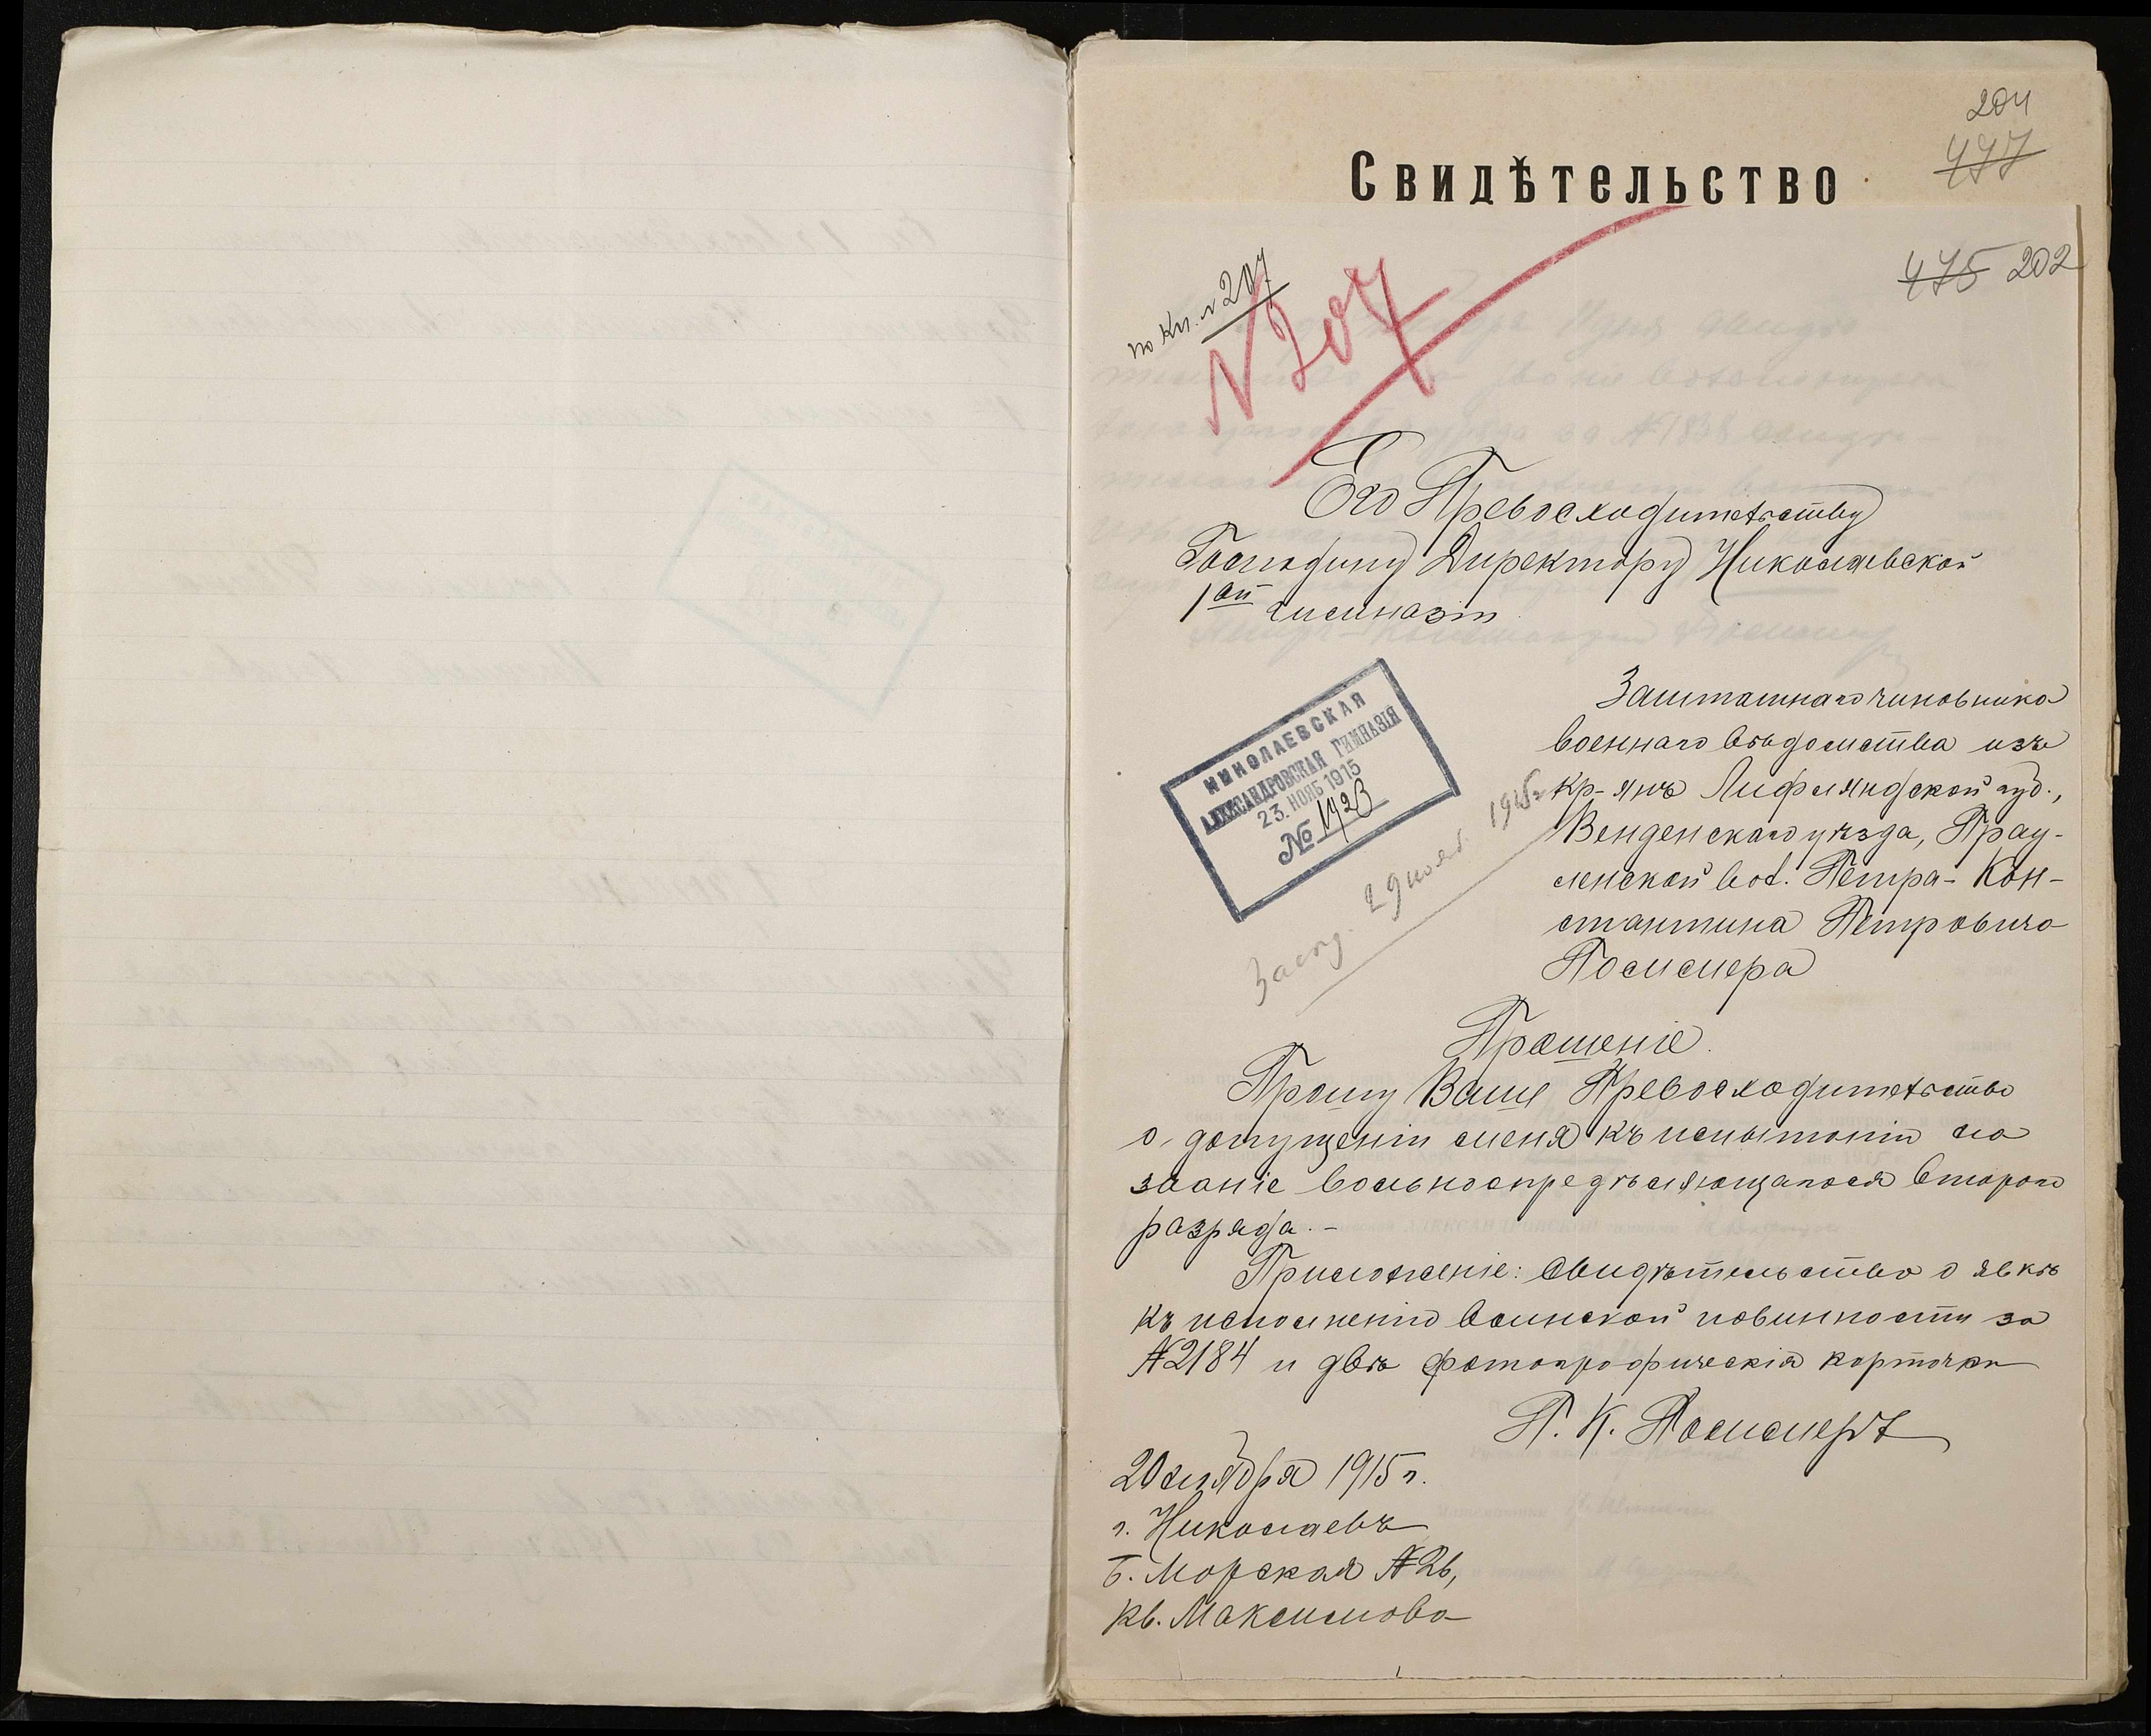 204
477
Свидѣтельство
475 202
по Кн. № 207
№ 207
Его Превосходительству
Господину Директору Николаевской
1ой гимназіи
НИКОЛАЕВСКАЯ
АЛЕКСАНДРОВСКАЯ ГИМНАЗІЯ
23. НОЯБ 1915
№ 1923
29 нояб. 1915 г
Заштатнаго чиновника
военнаго вѣдомства изъ
кр-янъ Лифляндской губ.,
Венденскаго уѣзда, Прау-
ленской вол. Петра-Кон-
стантина Петровича
Посмера
Прошеніе.
Прошу Ваше Превосходительство
о допущеніи меня къ испытанію на
званіе вольноопредѣляющагося второго
разряда. -
Приложеніе: свидѣтельство о явкѣ
къ исполненію воинской повинности за
№ 2184 и двѣ фотографическія карточки
П. К.
20 ноября 1915 г.
г. Николаевъ
Б. Морская № 26,
кв. Максимова